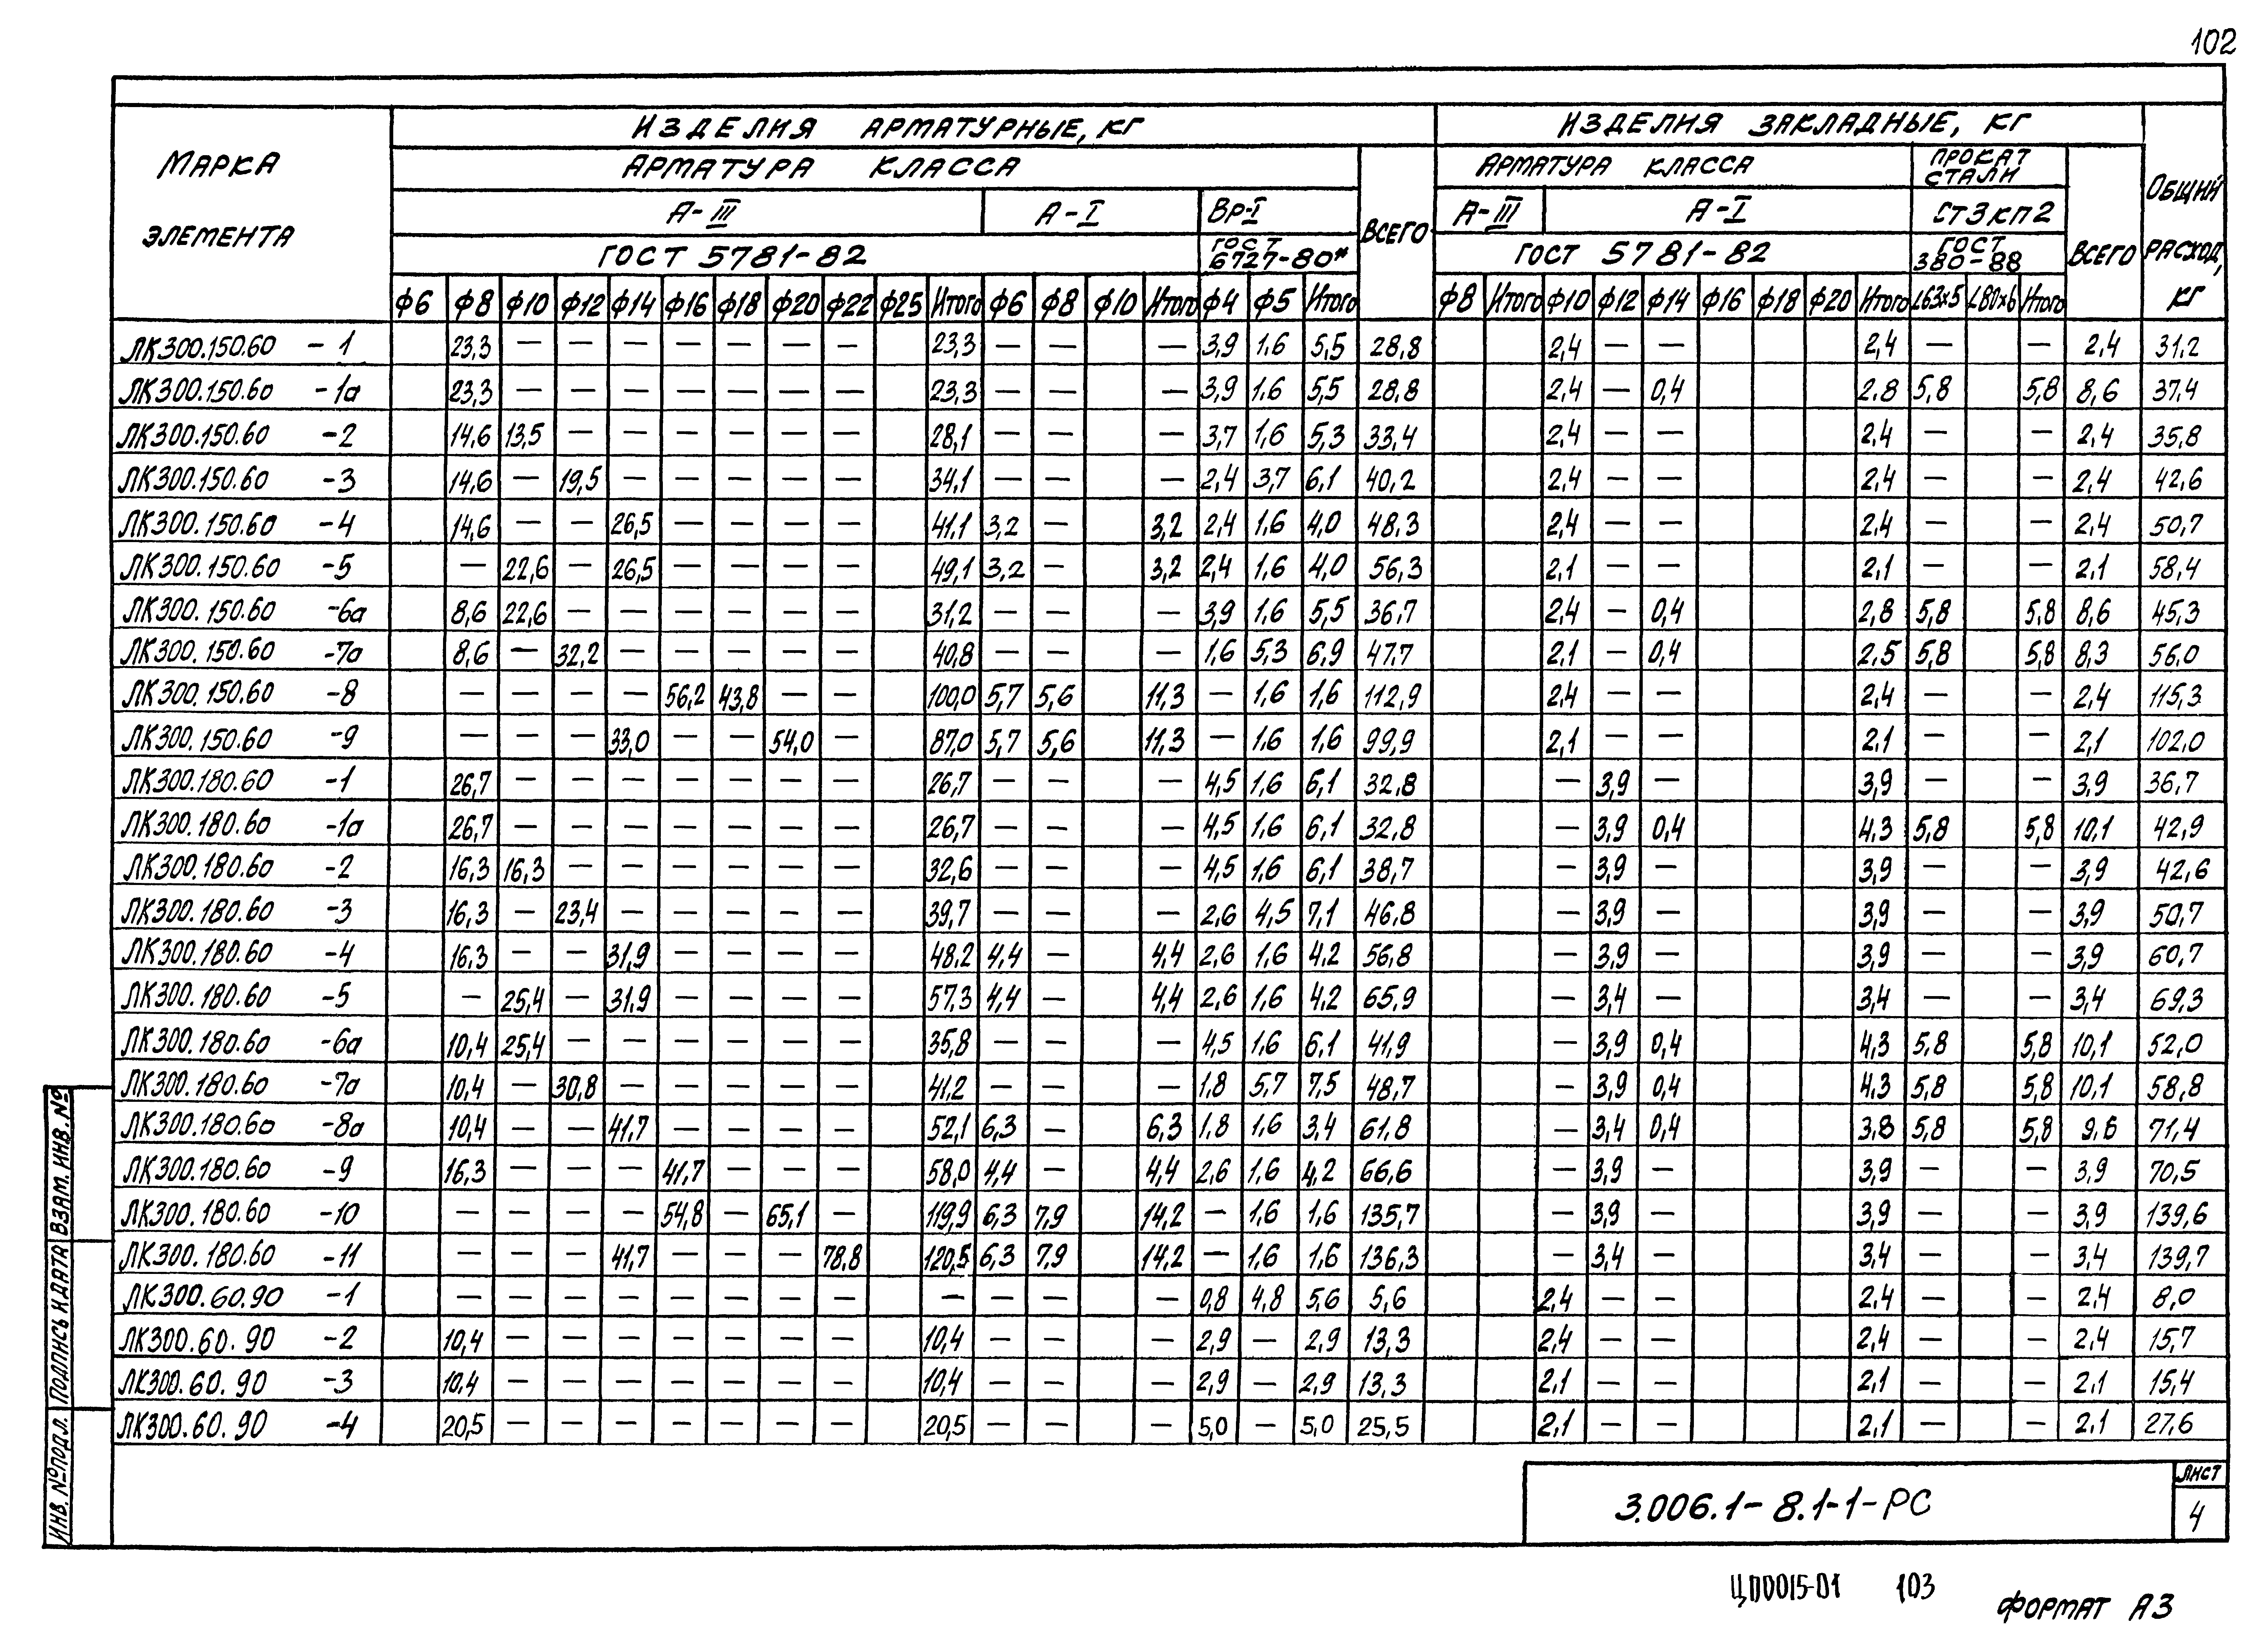 102
МАРКА ЭЛЕМЕНТА
ИЗДЕЛИЯ АРМАТУРНЫЕ, КГ
ИЗДЕЛИЯ ЗАКЛАДНЫЕ, КГ
ОБЩИЙ РАСХОД, КГ
АРМАТУРА КЛАССА
ВСЕГО
АРМАТУРА КЛАССА
ПРОКАТ СТАЛИ
ВСЕГО
А-III
А-I
Вр-I
А-III
А-I
СТ3КП2
ГОСТ 5781-82
ГОСТ 6727-80*
ГОСТ 5781-82
ГОСТ 380-88
ф6 ф8 ф10 ф12 ф14 ф16 ф18 ф20 ф22 ф25 Итого ф6 ф8 ф10 Итого ф4 ф5 Итого ф8 Итого ф10 ф12 ф14 ф16 ф18 ф20 Итого L63x5 L80x6 Итого
ЛК300.150.60 -1 23,3 — — — — — — — — 23,3 — — — 3,9 1,6 5,5 28,8 2,4 — — 2,4 — — 2,4 31,2
ЛК300.150.60 -1а 23,3 — — — — — — — — 23,3 — — — 3,9 1,6 5,5 28,8 2,4 — 0,4 2,8 5,8 5,8 8,6 37,4
ЛК300.150.60 -2 14,6 13,5 — — — — — — — 28,1 — — — 3,7 1,6 5,3 33,4 2,4 — — 2,4 — — 2,4 35,8
ЛК300.150.60 -3 14,6 — 19,5 — — — — — — 34,1 — — — 2,4 3,7 6,1 40,2 2,4 — — 2,4 — — 2,4 42,6
ЛК300.150.60 -4 14,6 — — 26,5 — — — — — 41,1 3,2 — 3,2 2,4 1,6 4,0 48,3 2,4 — — 2,4 — — 2,4 50,7
ЛК300.150.60 -5 — 22,6 — 26,5 — — — — — 49,1 3,2 — 3,2 2,4 1,6 4,0 56,3 2,1 — — 2,1 — — 2,1 58,4
ЛК300.150.60 -6а 8,6 22,6 — — — — — — — 31,2 — — — 3,9 1,6 5,5 36,7 2,4 — 0,4 2,8 5,8 5,8 8,6 45,3
ЛК300.150.60 -7а 8,6 — 32,2 — — — — — — 40,8 — — — 1,6 5,3 6,9 47,7 2,1 — 0,4 2,5 5,8 5,8 8,3 56,0
ЛК300.150.60 -8 — — — — 56,2 43,8 — — 100,0 5,7 5,6 11,3 — 1,6 1,6 112,9 2,4 — — 2,4 — — 2,4 115,3
ЛК300.150.60 -9 — — — 33,0 — — 54,0 — 87,0 5,7 5,6 11,3 — 1,6 1,6 99,9 2,1 — — 2,1 — — 2,1 102,0
ЛК300.180.60 -1 26,7 — — — — — — — 26,7 — — — 4,5 1,6 6,1 32,8 — 3,9 — 3,9 — — 3,9 36,7
ЛК300.180.60 -1а 26,7 — — — — — — — 26,7 — — — 4,5 1,6 6,1 32,8 — 3,9 0,4 4,3 5,8 5,8 10,1 42,9
ЛК300.180.60 -2 16,3 16,3 — — — — — — 32,6 — — — 4,5 1,6 6,1 38,7 — 3,9 — 3,9 — — 3,9 42,6
ЛК300.180.60 -3 16,3 — 23,4 — — — — — 39,7 — — — 2,6 4,5 7,1 46,8 — 3,9 — 3,9 — — 3,9 50,7
ЛК300.180.60 -4 16,3 — — 31,9 — — — — 48,2 4,4 — 4,4 2,6 1,6 4,2 56,8 — 3,9 — 3,9 — — 3,9 60,7
ЛК300.180.60 -5 — 25,4 — 31,9 — — — — 57,3 4,4 — 4,4 2,6 1,6 4,2 65,9 — 3,4 — 3,4 — — 3,4 69,3
ЛК300.180.60 -6а 10,4 25,4 — — — — — — 35,8 — — — 4,5 1,6 6,1 41,9 — 3,9 0,4 4,3 5,8 5,8 10,1 52,0
ЛК300.180.60 -7а 10,4 — 30,8 — — — — — 41,2 — — — 1,8 5,7 7,5 48,7 — 3,9 0,4 4,3 5,8 5,8 10,1 58,8
ЛК300.180.60 -8а 10,4 — — 41,7 — — — — 52,1 6,3 — 6,3 1,8 1,6 3,4 61,8 — 3,4 0,4 3,8 5,8 5,8 9,6 71,4
ЛК300.180.60 -9 16,3 — — — 41,7 — — — 58,0 4,4 — 4,4 2,6 1,6 4,2 66,6 — 3,9 — 3,9 — — 3,9 70,5
ЛК300.180.60 -10 — — — — 54,8 — 65,1 — 119,9 6,3 7,9 14,2 — 1,6 1,6 135,7 — 3,9 — 3,9 — — 3,9 139,6
ЛК300.180.60 -11 — — — 41,7 — — — 78,8 120,5 6,3 7,9 14,2 — 1,6 1,6 136,3 — 3,4 — 3,4 — — 3,4 139,7
ЛК300.60.90 -1 — — — — — — — — — — — — 0,8 4,8 5,6 5,6 2,4 — — 2,4 — — 2,4 8,0
ЛК300.60.90 -2 10,4 — — — — — — — 10,4 — — — 2,9 — 2,9 13,3 2,4 — — 2,4 — — 2,4 15,7
ЛК300.60.90 -3 10,4 — — — — — — — 10,4 — — — 2,9 — 2,9 13,3 2,1 — — 2,1 — — 2,1 15,4
ЛК300.60.90 -4 20,5 — — — — — — — 20,5 — — — 5,0 — 5,0 25,5 2,1 — — 2,1 — — 2,1 27,6
ИНВ. № ПОДЛ. ПОДПИСЬ И ДАТА ВЗАМ. ИНВ. №
3.006.1-8.1-1-РС
ЛИСТ
4
ЦП0015-01 103
ФОРМАТ А3